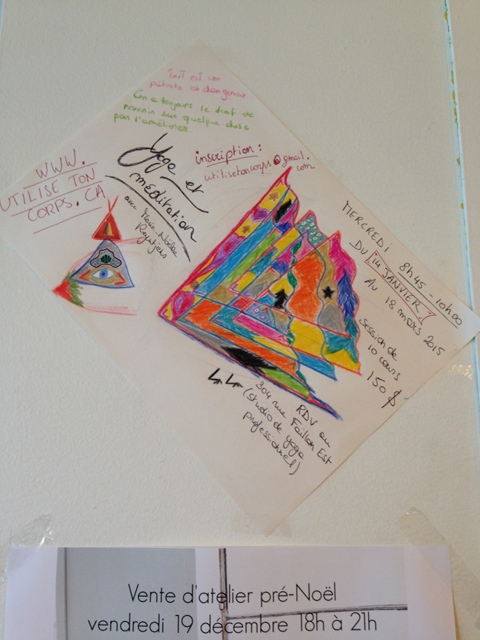 Tout est un
on a toujours le droit de
revenir sur quelque chose
pour l'améliorer
WWW.
UTILISE TON
CORPS.CA
Yoga et
méditation
avec
inscription:
utilisetoncorps@gmail.
com
MERCREDI 8h45 - 10h00
DU 14 JANVIER
AU 18 mars 2015
session de
10 cours
150 $
RDV au
304 rue Faillon Est
(studio de yoga
professionnel)
Vente d'atelier pré-Noël
vendredi 19 décembre 18h à 21h